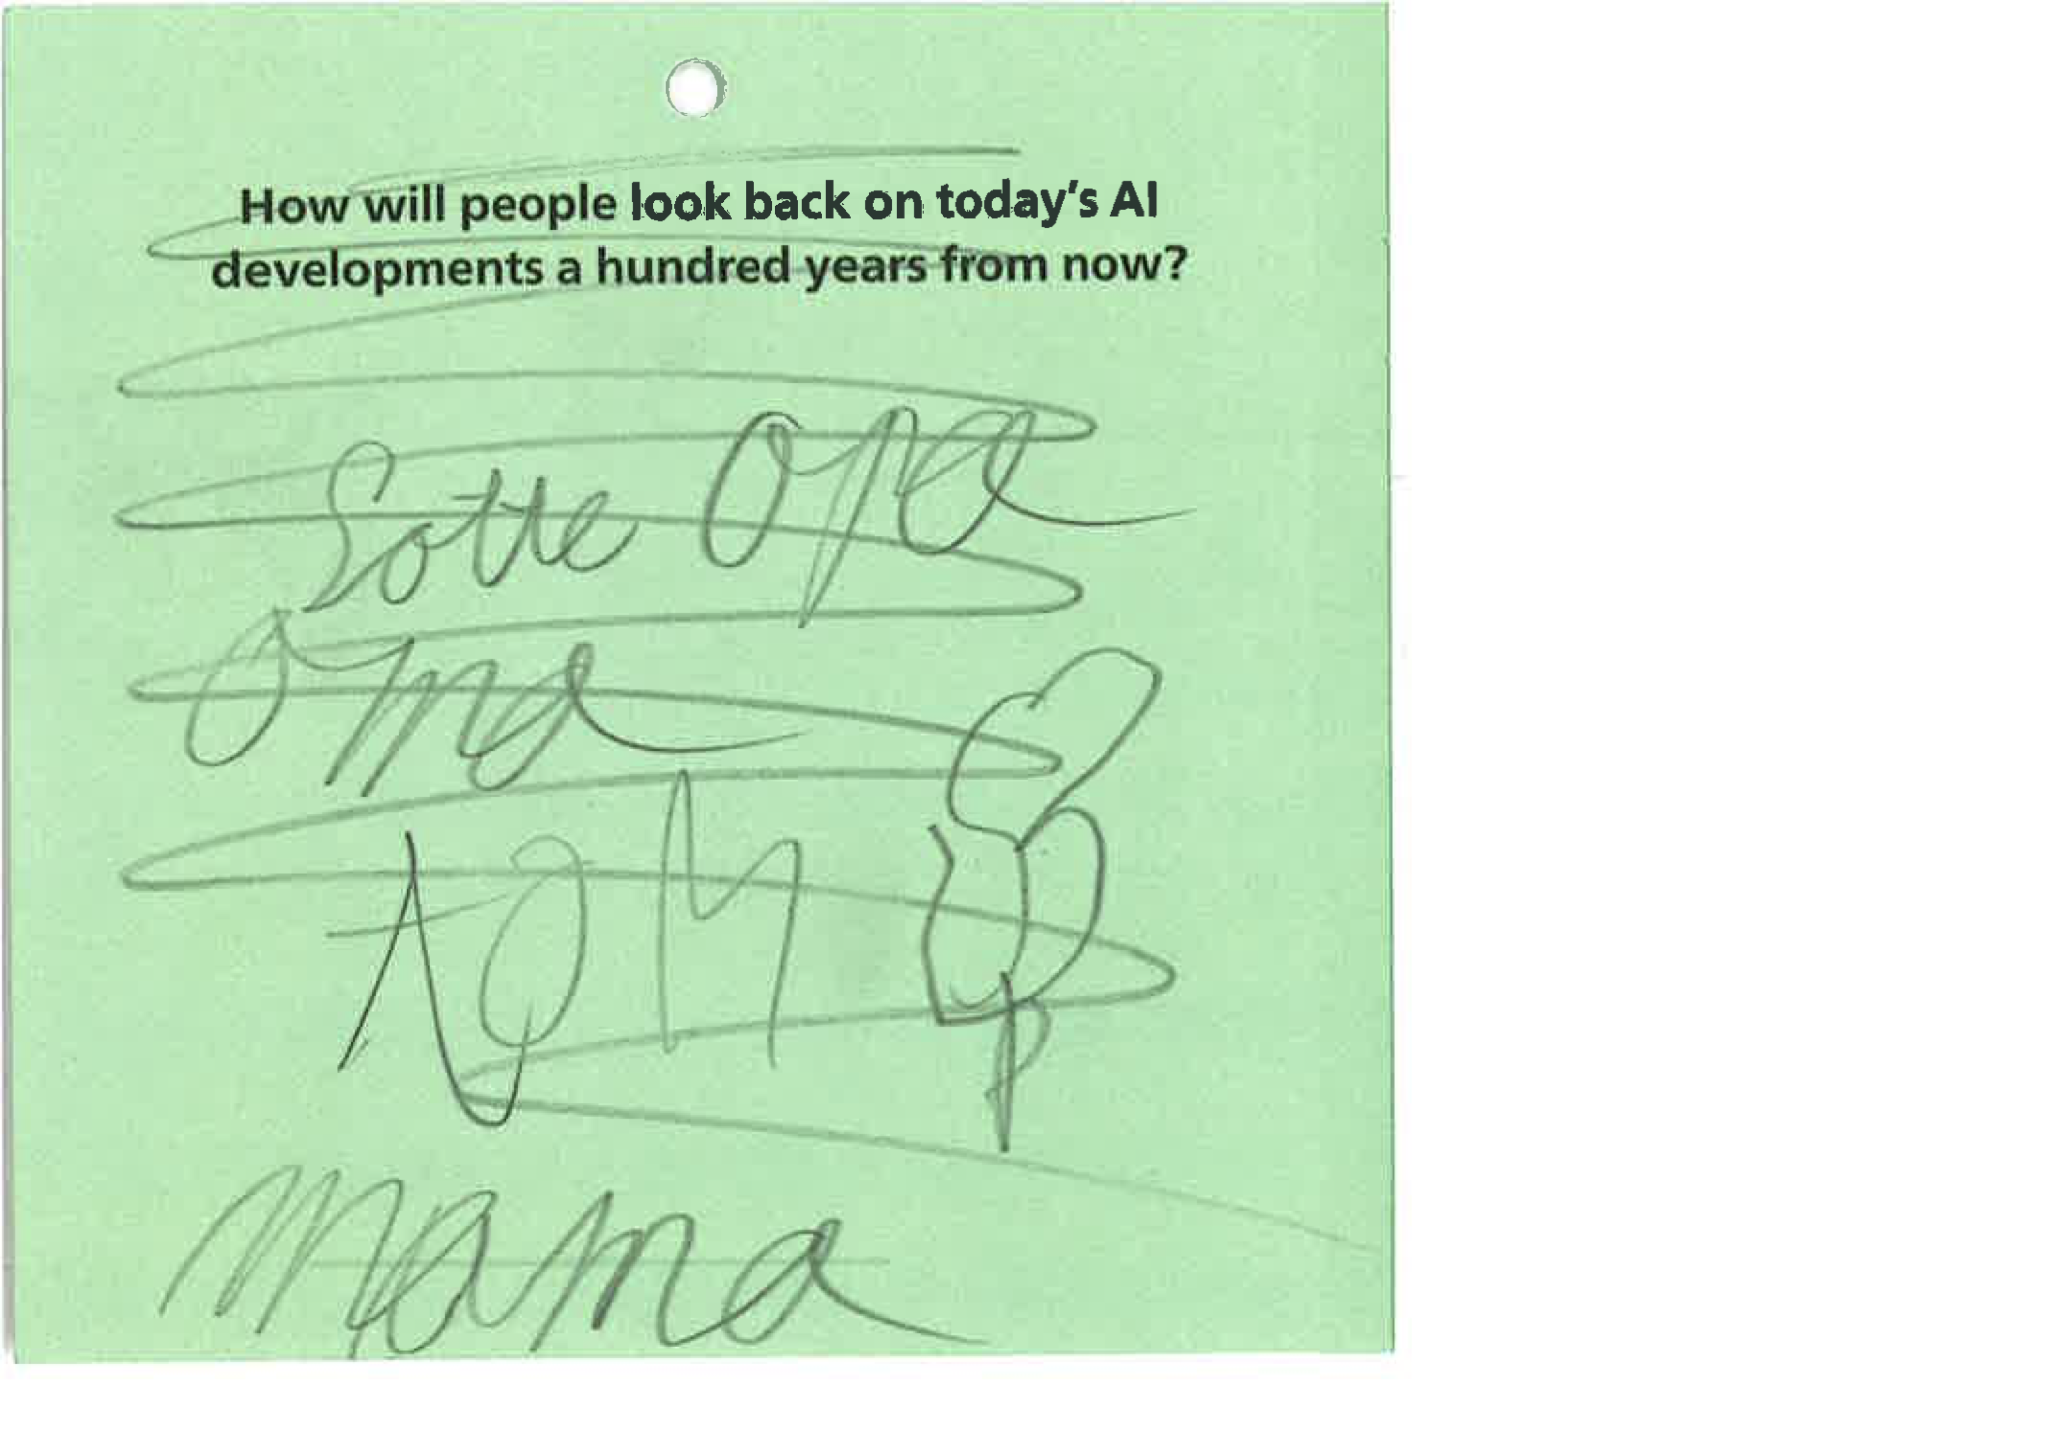 How will people look back on today's AI
developments a hundred years from now?
Lotte Opa
Oma
TOM
Mama